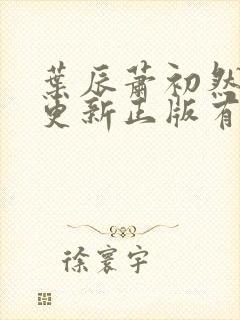 葉辰蕭初然
更新正版有
徐寰宇